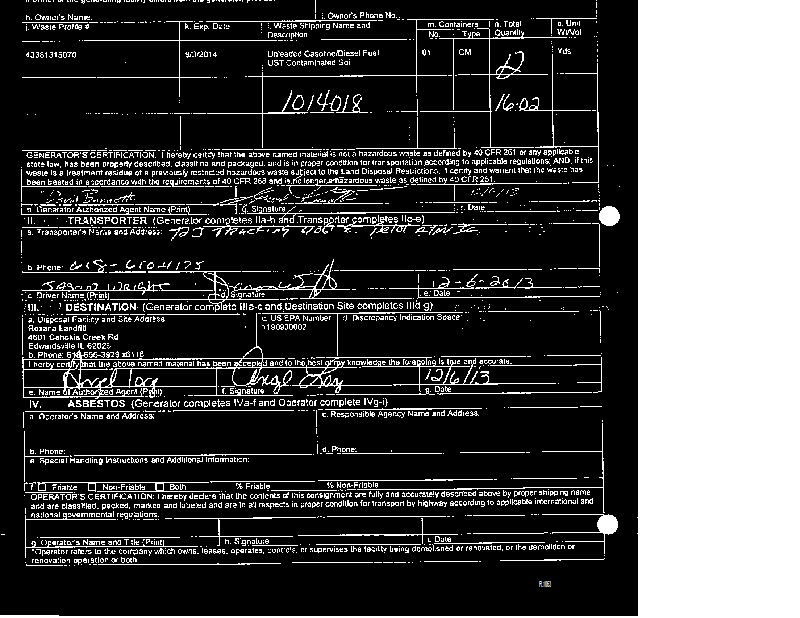 h. Owner's Name: i. Owner's Phone No.
j. Waste Profile # k. Exp. Date l. Waste Shipping Name and Description m. Containers No. Type n. Total Quantity o. Unit Wt/Vol
9/3/2014 Unleaded Gasoline/Diesel Fuel UST Contaminated Soil 01 CM Yds
1014018 16.02
GENERATOR'S CERTIFICATION: I hereby certify that the above named material is not a hazardous waste as defined by 40 CFR 261 or any applicable
state law, has been properly described, classified and packaged, and is in proper condition for transportation according to applicable regulations; AND, if this
waste is a treatment residue of a previously restricted hazardous waste subject to the Land Disposal Restrictions, I certify and warrant that the waste has
been treated in accordance with the requirements of 40 CFR 268 and is no longer a hazardous waste as defined by 40 CFR 261.
David Bennett 12/6/13
p. Generator Authorized Agent Name (Print) q. Signature r. Date
II. TRANSPORTER (Generator completes IIa-b and Transporter completes IIc-e)
a. Transporter's Name and Address:
b. Phone:
Jason Wright 12-6-2013
c. Driver Name (Print) d. Signature e. Date
III. DESTINATION (Generator complete IIIa-c and Destination Site completes IIId-g)
a. Disposal Facility and Site Address c. US EPA Number d. Discrepancy Indication Space:
Roxana Landfill
4601 Cahokia Creek Rd
Edwardsville IL 62025
b. Phone: 618-656-3929 x6118
I hereby certify that the above named material has been accepted and to the best of my knowledge the foregoing is true and accurate.
12/6/13
e. Name of Authorized Agent (Print) f. Signature g. Date
IV. ASBESTOS (Generator completes IVa-f and Operator complete IVg-i)
a. Operator's Name and Address: c. Responsible Agency Name and Address:
b. Phone: d. Phone:
e. Special Handling Instructions and Additional Information:
f. Friable Non-Friable Both % Friable % Non-Friable
OPERATOR'S CERTIFICATION: I hereby declare that the contents of this consignment are fully and accurately described above by proper shipping name
and are classified, packed, marked and labeled and are in all respects in proper condition for transport by highway according to applicable international and
national governmental regulations.
g. Operator's Name and Title (Print) h. Signature i. Date
*Operator refers to the company which owns, leases, operates, controls, or supervises the facility being demolished or renovated, or the demolition or
renovation operation or both